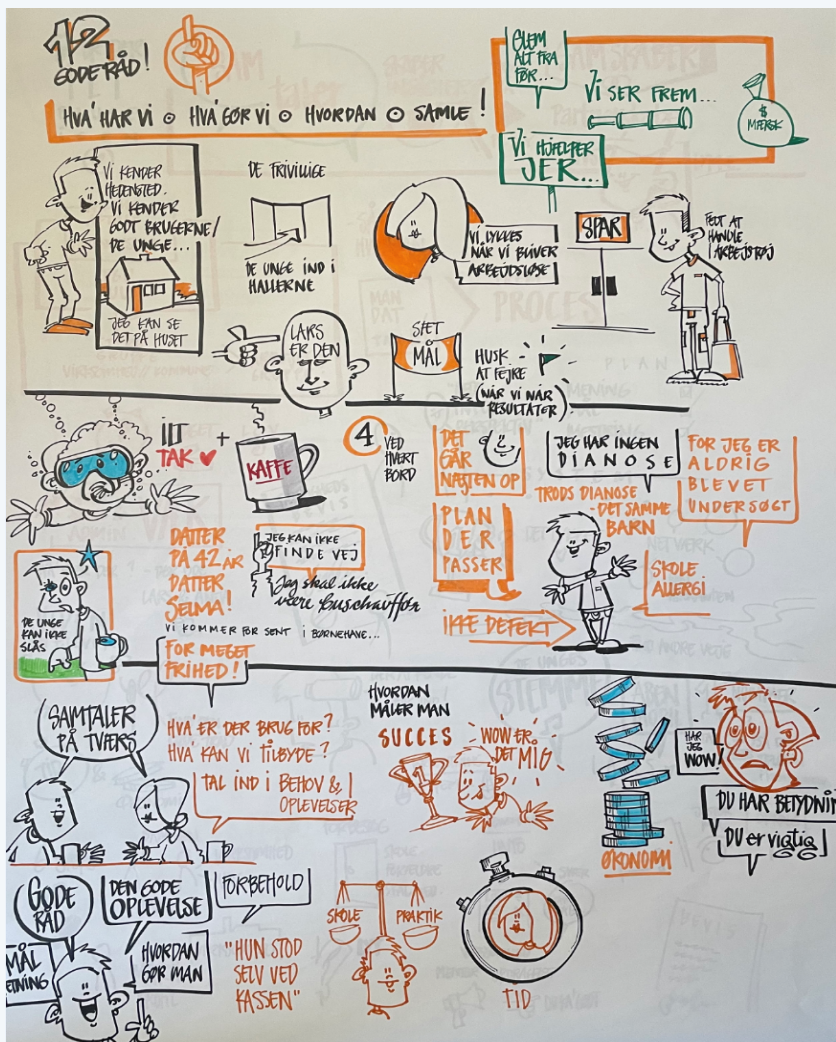 12
GODE RÅD!
HVA' HAR VI o HVA' GØR VI o HVORDAN o SAMLE !
GLEM
ALT FRA
FØR...
VI SER FREM...
$
MÆRSK
VI HJÆLPER
JER...
VI KENDER
HEDENSTED.
VI KENDER
GODT BRUGERNE/
DE UNGE...
JEG KAN SE
DET PÅ HUSET
DE FRIVILLIGE
DE UNGE IND I
HALLERNE
VI LYKKES
NÅR VI BLIVER
ARBEJDSLØSE
SPAR
FEDT AT
HANDLE
I ARBEJDSTØJ
LARS
ER DEN
SÆT
MÅL
HUSK
AT FEJRE
(NÅR VI NÅR
RESULTATER)
ILT
TAK
+
KAFFE
4
VED
HVERT
BORD
DET
GÅR
NÆJTEN OP
PLAN
DER
PASSER
JEG HAR INGEN
DIANOSE
TRODS DIANOSE
- DET SAMME
BARN
FOR JEG ER
ALDRIG
BLEVET
UNDERSØGT
SKOLE
ALLERGI
IKKE DEFEKT
DE UNGE
KAN IKKE
SLÅS
DATTER
PÅ 42 ÅR
DATTER
SELMA!
JEG KAN IKKE
FINDE VEJ
Jeg skal ikke
være buschauffør
VI KOMMER FOR SENT I BØRNEHAVE...
FOR MEGET
FRIHED!
SAMTALER
PÅ TVÆRS
HVA' ER DER BRUG FOR?
HVA' KAN VI TILBYDE?
TAL IND I BEHOV &
OPLEVELSER
HVORDAN
MÅLER MAN
SUCCES
1
WOW ER
DET MIG
ØKONOMI
HAR
JEG
WOW!
DU HAR BETYDNIN
DU er vigtig
GODE
RÅD
DEN GODE
OPLEVELSE
FORBEHOLD
MÅL
ETNING
HVORDAN
GØR MAN
"HUN STOD
SELV VED
KASSEN"
SKOLE
PRAKTIK
TID